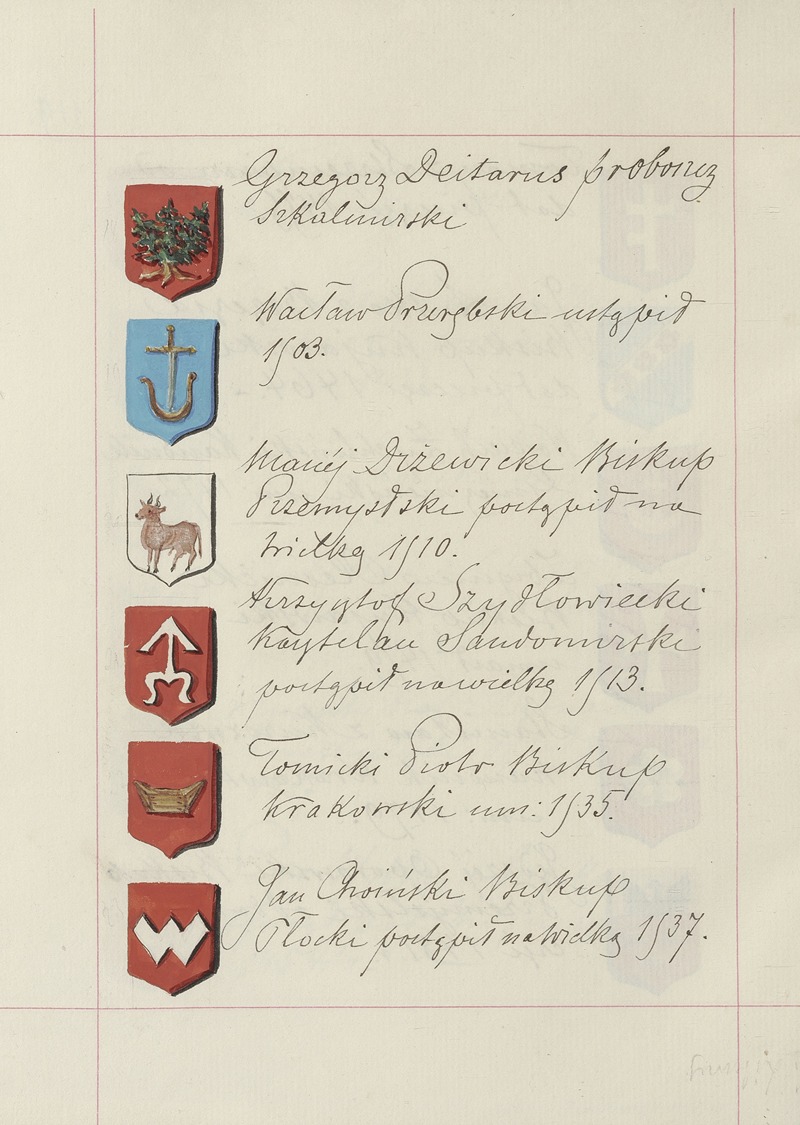 Grzegorz Deitarus proboszcz
Szkalmirski
Wacław Przerębski ustąpił
1503.
Maciéj Drżewicki Biskup
Przemyslski postąpił na
wielką 1510.
Krzysztof Szydłowiecki
Kasztelan Sandomirski
postąpił na wielką 1513.
Tomicki Piotr Biskup
Krakowski um: 1535.
Jan Choiński Biskup
Płocki postąpił na Wielką 1537.